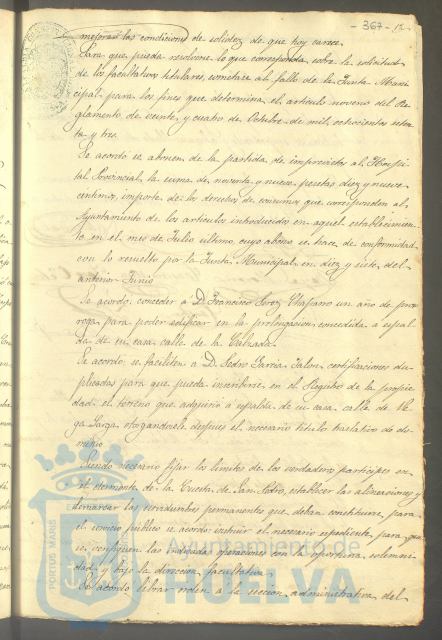 - 367 - 12
mejoras las condiciones de solidez de que hoy carece.
Para que pueda resolverse lo que corresponda sobre la solicitud
de los facultativos titulares, sométase al fallo de la Junta Muni
cipal para los fines que determina el artículo noveno del Re
glamento de veinte y cuatro de Octubre de mil ochocientos seten
ta y tres.
Se acordó se abonen de la partida de imprevistos al Hospi
tal Provincial, la suma de noventa y nueve pesetas diez y nueve
céntimos, importe de los derechos de consumos que corresponden al
Ayuntamiento de los artículos introducidos en aquel establecimien
to en el mes de Julio último, cuyo abono se hace de conformidad
con lo resuelto por la Junta Municipal en diez y siete del
anterior Junio
Se acordó conceder a D. Francisco Perez Chaparro un año de pro
roga para poder edificar en la prolongacion concedida a espal
da de su casa calle de la Calzada.
Se acordó se faciliten a D. Pedro Garcia Jalon certificaciones du
plicadas para que pueda inscribirse en el Registro de la propie
dad el terreno que adquirió a espalda de su casa calle de Ve
ga Larga, otorgandosele despues el necesario título traslativo de do
minio
Siendo necesario fijar los limites de los verdaderos partícipes en
el
de la Cuesta de San Pedro, establecer las alineaciones y
demarcar las servidumbres permanentes que deban constituirse para
el servicio público se acordó instruir el necesario espediente para que
se verifiquen las indicadas operaciones con la oportuna solemni
dad y bajo la direccion facultativa.
Se acordó librar orden a la seccion administrativa del
PORTUS MARIS
Ayuntamiento de
HUELVA